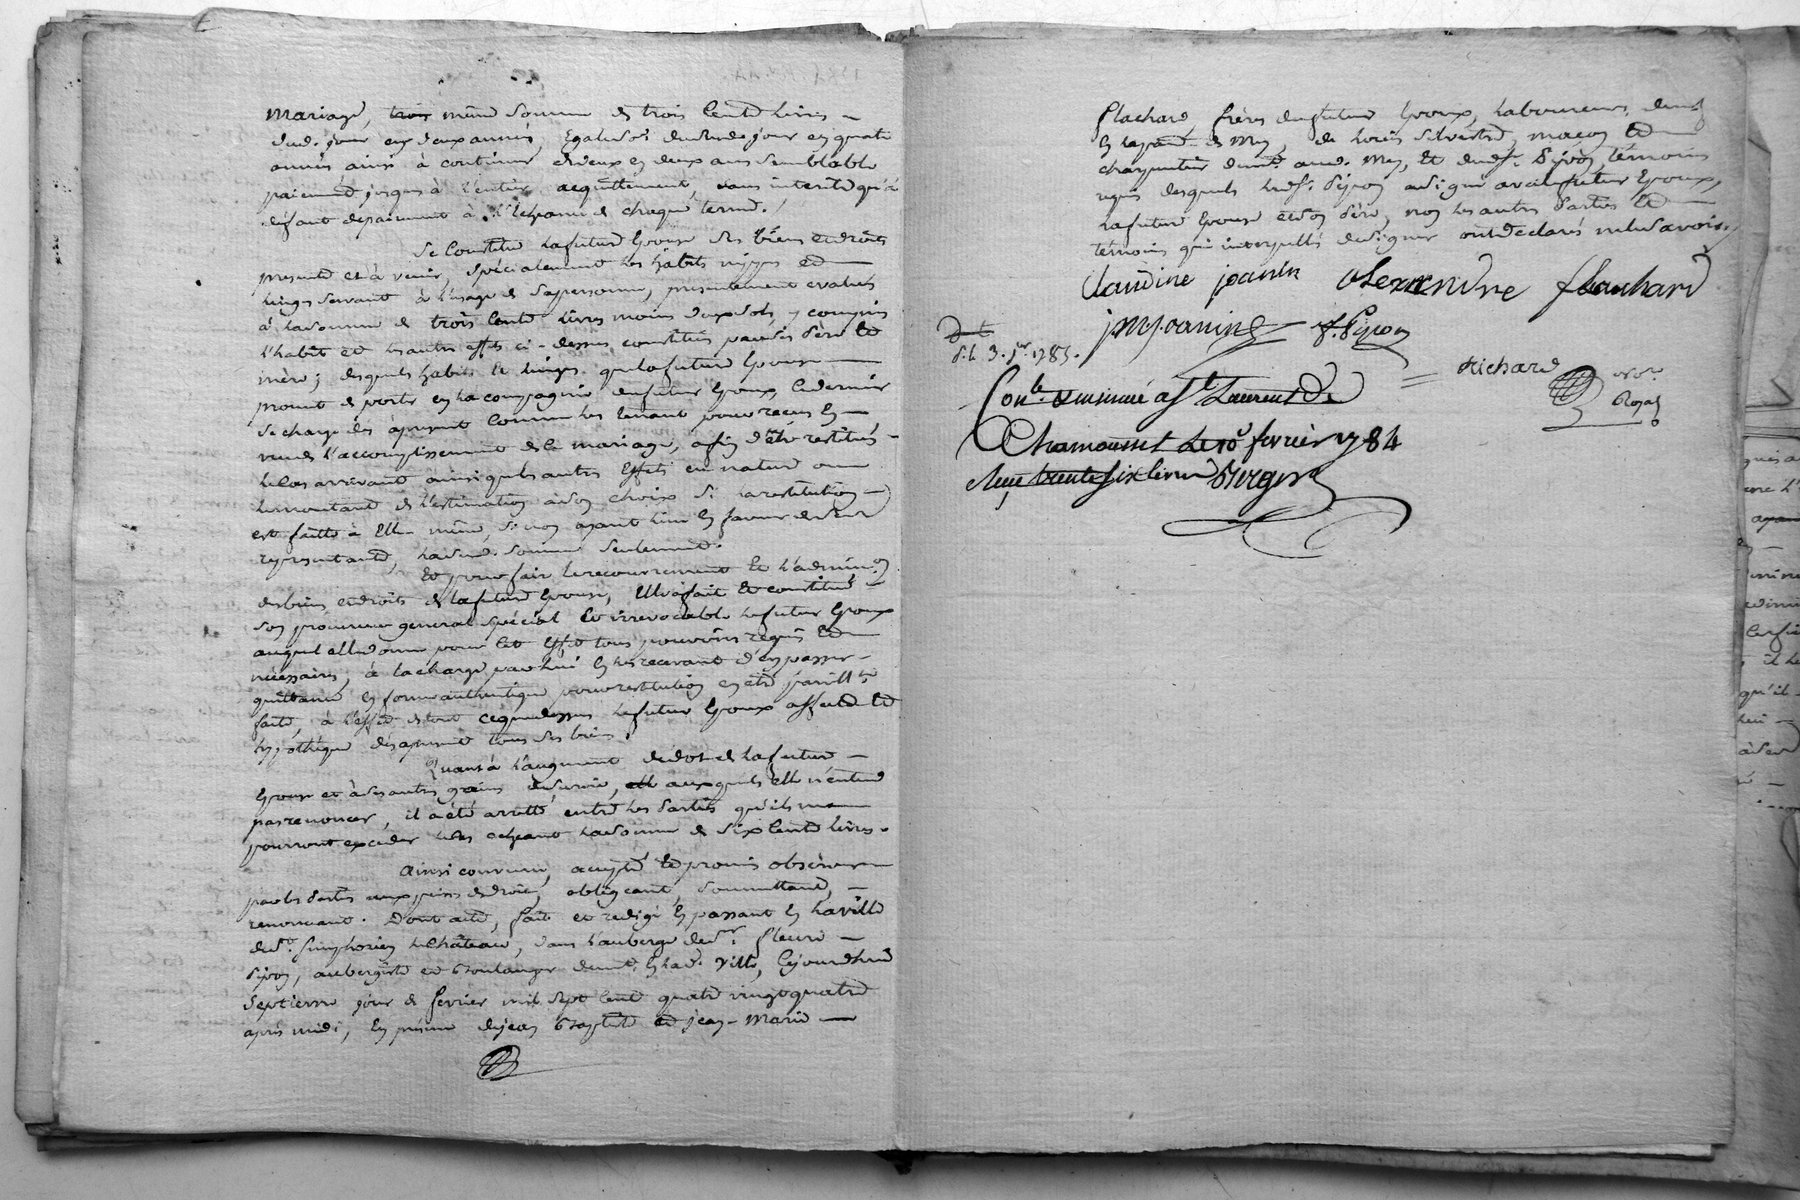 mariage, trois même Somme de trois Cents Livres
dud. jour en deux années, Egale Som. dud. jour en quatre
années ainsi à continuer de deux en deux ans Semblable
paiement jusques à l'entier acquittement, sans interets qu'à
défaut de paiement à l'Echeance de chaque terme.
Se Constitue la future Epouse Ses biens et droits
presents et à venir, Spécialement Les habits nippes et
Linges Servant à l'usage de Sa personne, presentement evalués
à la Somme de trois Cents Livres moins deux Sols, y compris
l'habit et les autres effets ci-dessus constitués par Ses père et
mère; desquels habits et linges que la future Epouse
promet de porter en la compagnie du futur Epoux, Ce dernier
Se charge dès àpresent Comme Les tenant pour reçus En
vertu l'accomplissement de le mariage, afin d'être restitués
le Cas arrivant ainsi que les autres Effets en nature ou
le montant de l'estimation à Son choix Si la restitution
est faitte à Elle même, Si non ayant lieu En faveur de Ses
representants, lad. Somme Seulement.
Et pour faire le recouvrement Et l'admin.on
des biens et droits de la future Epouse, Elle a fait Et constitué
Son procureur general Spécial Et irrevocable le futur Epoux
auquel Elle donne pour Cet Effet tous pouvoirs requis Et
nécessaires, à la charge par lui En les recevant d'en passer
quittance En forme authentique pour restitution en être pareillt
faite, à l'effet de tout Ce que dessus le futur Epoux affecte Et
hypothèque dès àpresent tous Ses biens.
Quant à l'augment de dot de la future
Epouse et à Ses autres gains de Survie, auxquels Elle n'entend
pas renoncer, il a été arretté entre Les Parties qu'ils ne
pourront exceder le Cas echeant la Somme de Six Cents Livres.
Ainsi convenu, accepté Et promis observer
par les Parties aux peines de droit, obligeant, Soumettant,
renonçant. Dont acte, fait et redigé En passant En la ville
de St. Simphorien le Château, dans l'auberge de Sr. fleurie
Pipon, aubergiste et Boulanger demt. En lad. Ville, Cejourd'hui
Septieme jour de fevrier mil Sept Cent quatre vingt quatre
après midi, En présence de jean Baptiste Et jean-Marie
flachard, frères du futur Epoux, Laboureurs, demts
En la par. de Mey, de Loüis Silvestre, maçon Et
charpentier demt. aud. Mey, Et dud. Sr. Pipon, témoins
requis desquels led. Sr. Pipon a Signé avec le futur Epoux,
la future Epouse et Son père, non Les autres Parties Et
témoins qui interpellés de Signer ont declaré ne le Savoir.
Claudine joanin alexendre flauhard
jM joanin f. Pipon
Richard nore. Royal
S.t. 3. jer. 1785.
Con.lé & insinué a St Laurent De
Chamousset Le 10e fevrier 1784
Reçu trente Six livres Verger